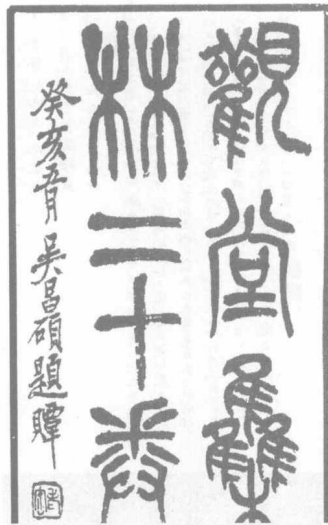 觀堂雧
林二十卷
癸亥 月 吳昌碩題贉